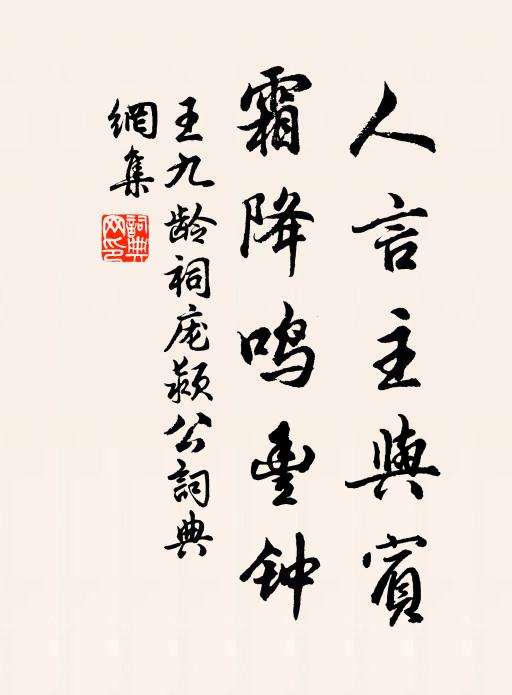 人言主與賓
霜降鸣豊钟
王九龄祠庞颍公詞典
網集
詞典
网印